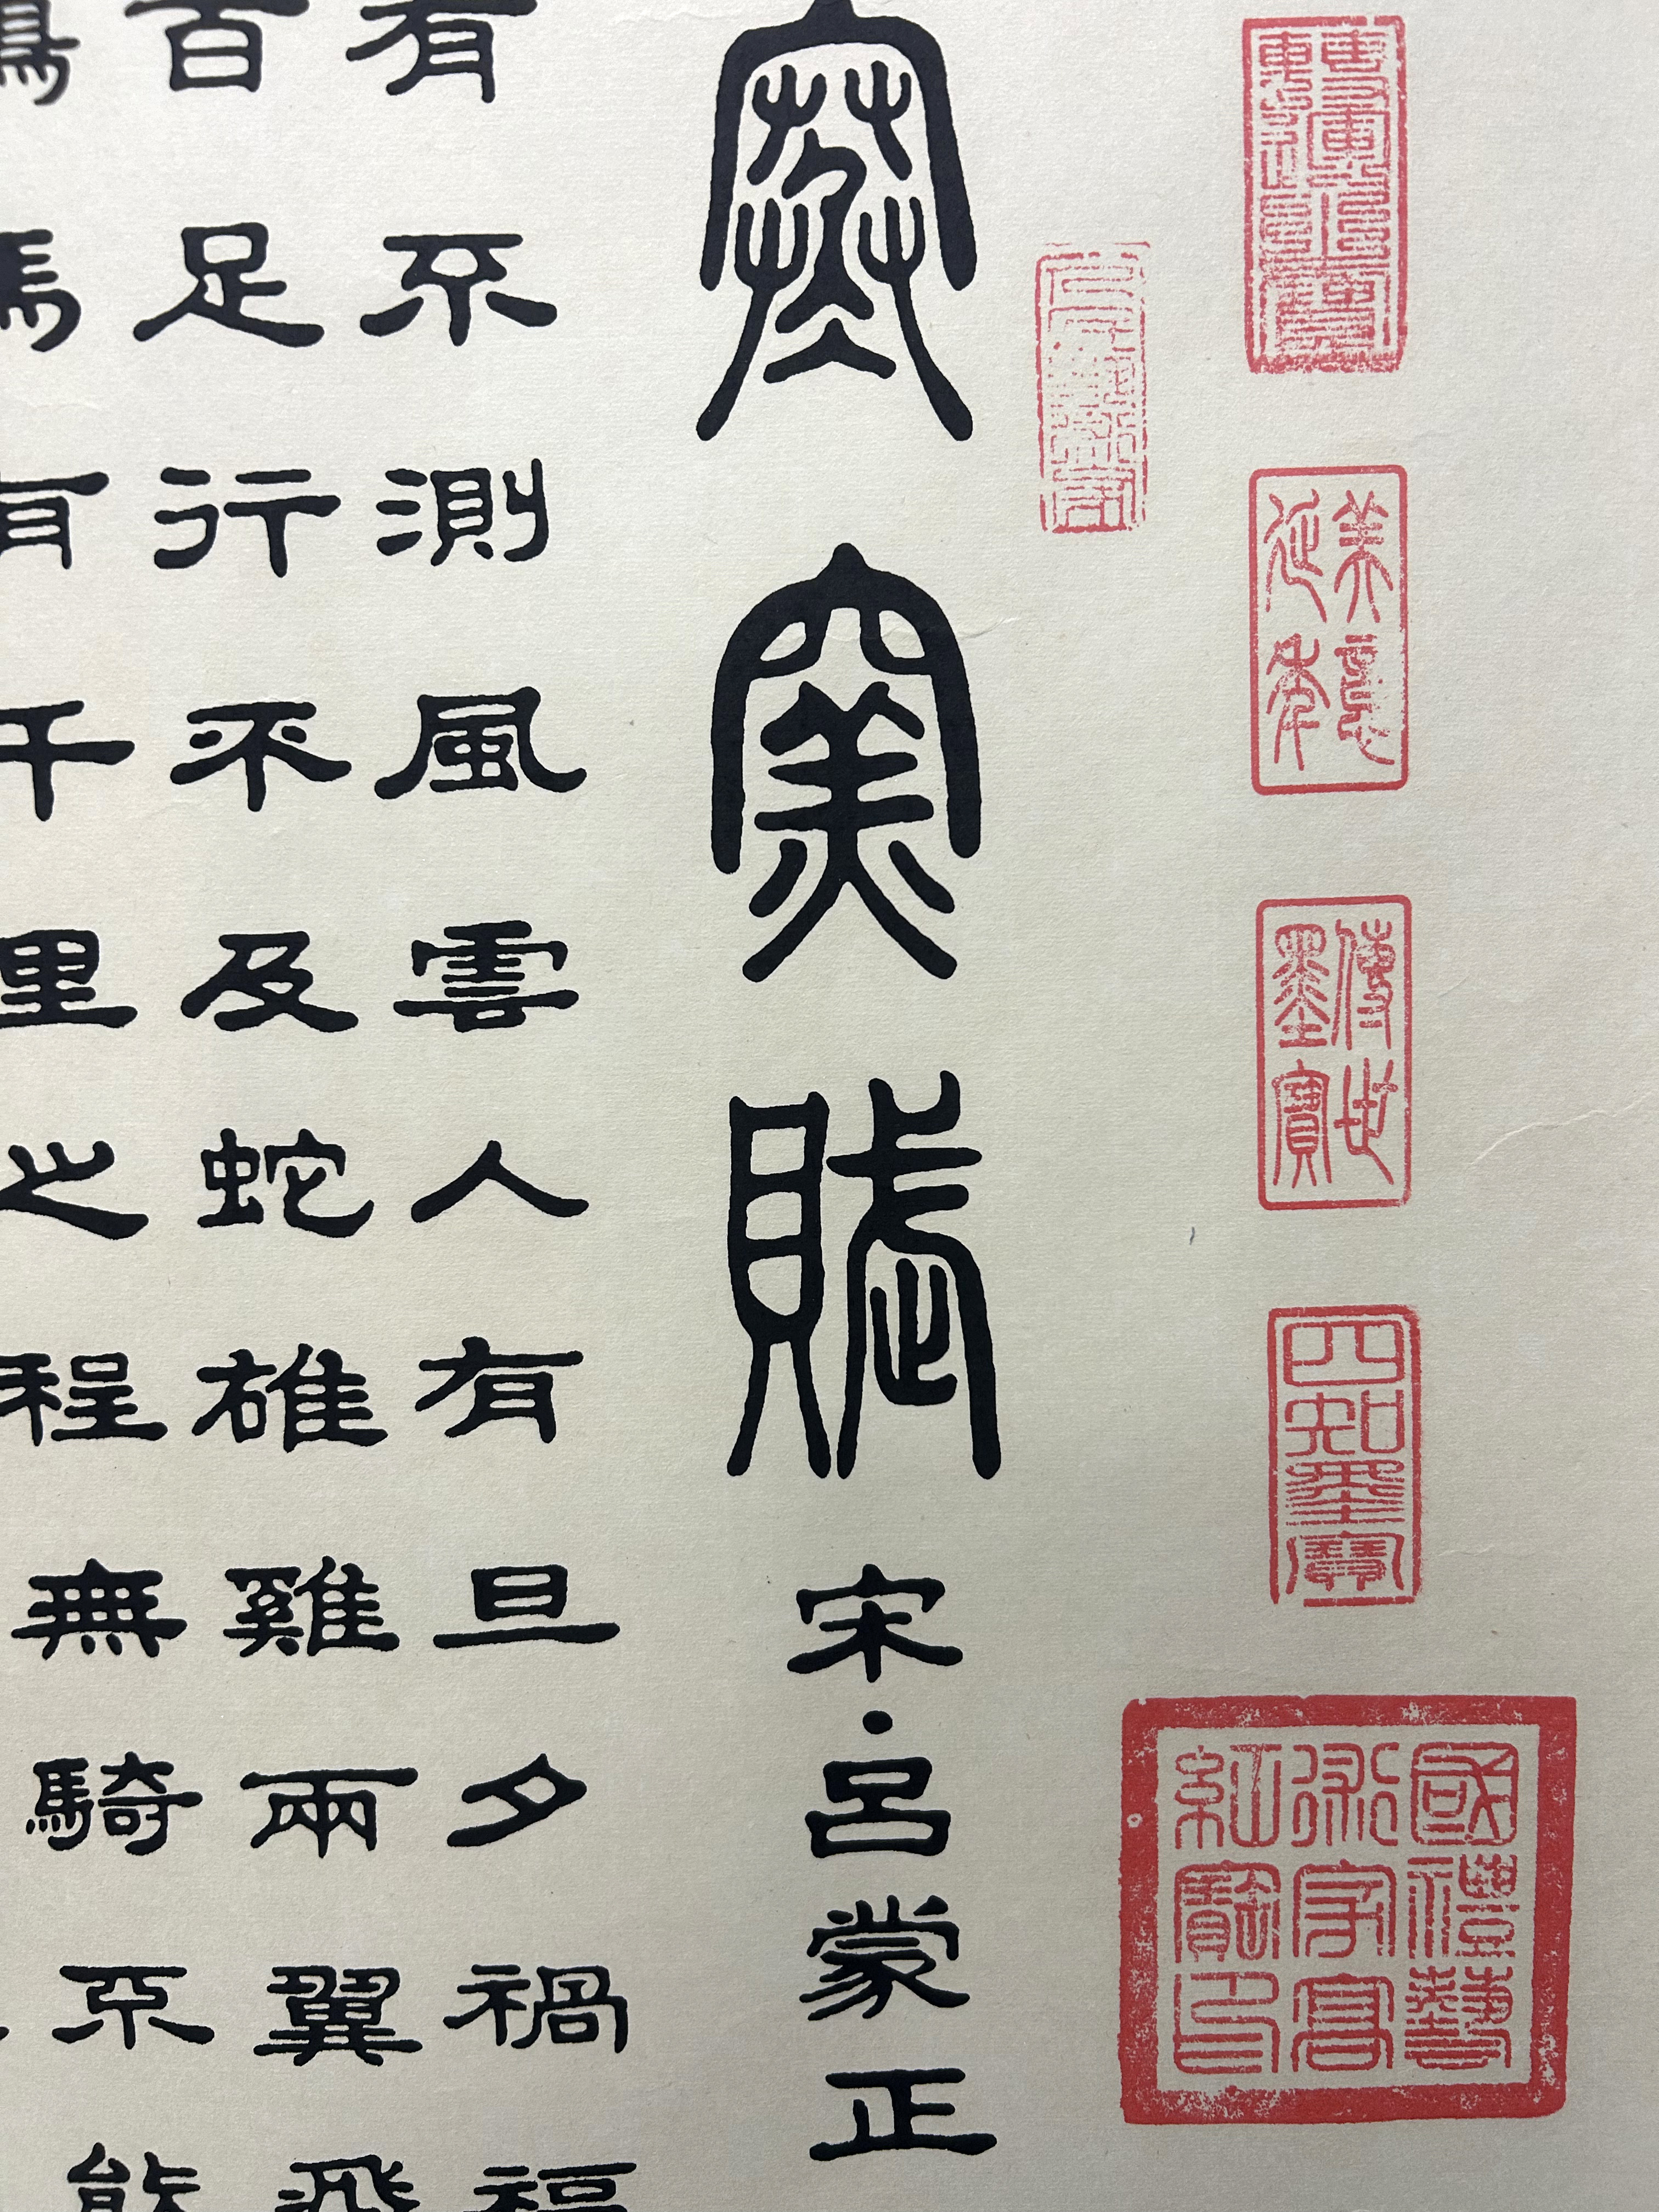 美意延年
傳世墨寶
四知墨寶
國禮藝術家高紅寶印
寒窯賦 宋·呂蒙正
有不測風雲人有旦夕禍福
百足行不及蛇雄雞兩翼飛
馬有千里之程無騎不能